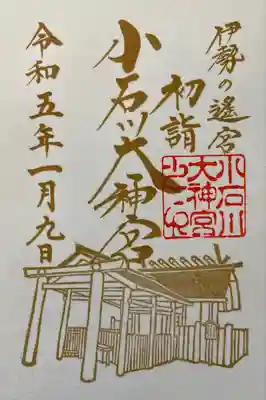 伊勢の遙宮
初詣
小石川大神宮
小石川
大神宮
之印
令和五年一月九日